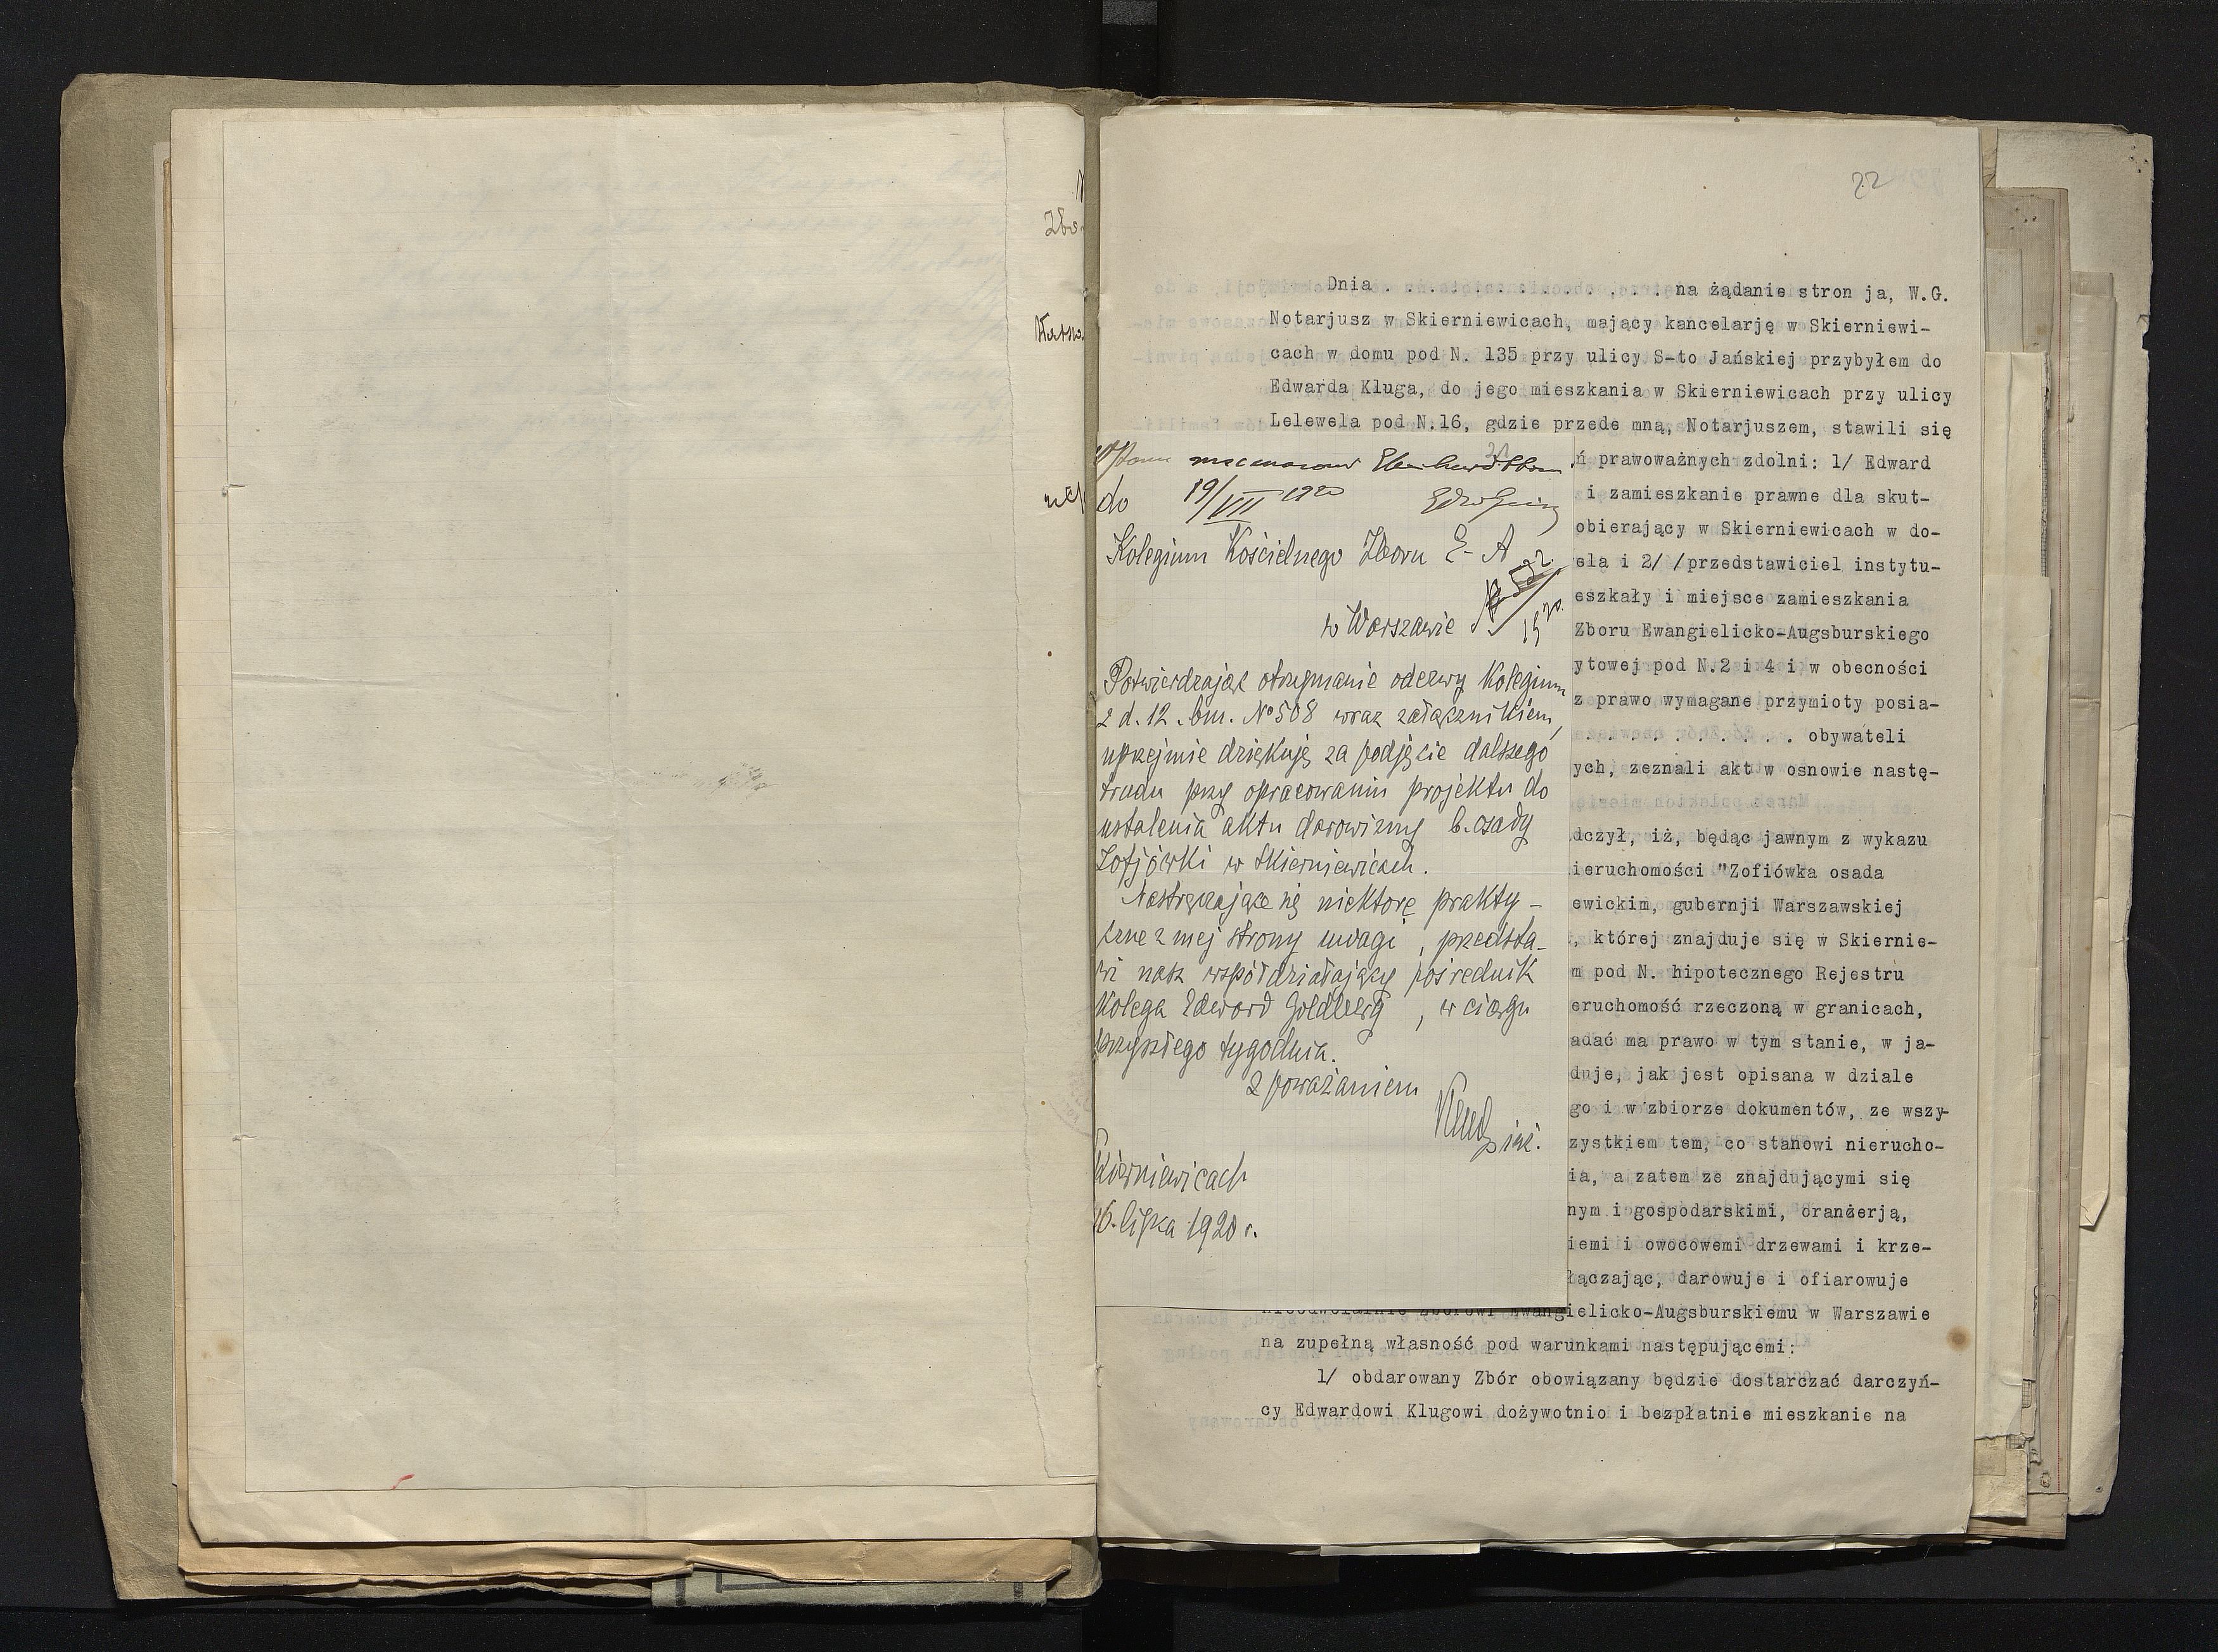 22
Zbo
Warsza
Dnia . . . . . . . . . . . . . . . . . na żądanie stron ja, W.G.
Notarjusz w Skierniewicach, mający kancelarję w Skierniewi-
cach w domu pod N. 135 przy ulicy S-to Jańskiej przybyłem do
Edwarda Kluga, do jego mieszkania w Skierniewicach przy ulicy
Lelewela pod N.16, gdzie przede mną, Notarjuszem, stawili się
ń prawoważnych zdolni: 1/ Edward
i zamieszkanie prawne dla skut-
obierający w Skierniewicach w do-
ela i 2/ /przedstawiciel instytu-
eszkały i miejsce zamieszkania
Zboru Ewangielicko-Augsburskiego
ytowej pod N.2 i 4 i w obecności
z prawo wymagane przymioty posia-
. . . . . . . . . . . obywateli
ych, zeznali akt w osnowie nastę-
dczył, iż, będąc jawnym z wykazu
ieruchomości "Zofiówka osada
ewickim, gubernji Warszawskiej
, której znajduje się w Skiernie-
m pod N. hipotecznego Rejestru
eruchomość rzeczoną w granicach,
adać ma prawo w tym stanie, w ja-
duje, jak jest opisana w dziale
go i w zbiorze dokumentów, ze wszy-
zystkiem tem, co stanowi nierucho-
ia, a zatem ze znajdującymi się
nym i gospodarskimi, oranżerją,
iemi i owocowemi drzewami i krze-
łączając, darowuje i ofiarowuje
nieodwołalnie Zborowi Ewangielicko-Augsburskiemu w Warszawie
na zupełną własność pod warunkami następującemi:
1/ obdarowany Zbór obowiązany będzie dostarczać darczyń-
cy Edwardowi Klugowi dożywotnio i bezpłatnie mieszkanie na
mecenasowi
do 19/VII 1920
Kolegium Kościelnego Zboru E-A
w Warszawie
Potwierdzając otrzymanie odezwy Kolegium
z d. 12. bm. No 508 wraz załącznikiem,
uprzejmie dziękuję za podjęcie dalszego
trudu przy opracowaniu projektu do
ustalenia aktu darowizny b. osady
Zofjówki w Skierniewicach.
Nastręczające się niektóre prakty-
czne z mej strony uwagi, przedsta-
wi nasz współdziałający pośrednik
Kolega Edward Goldberg, w ciągu
przyszłego tygodnia.
z poważaniem
Klug inż.
Skierniewicach
16. lipca 1920 r.